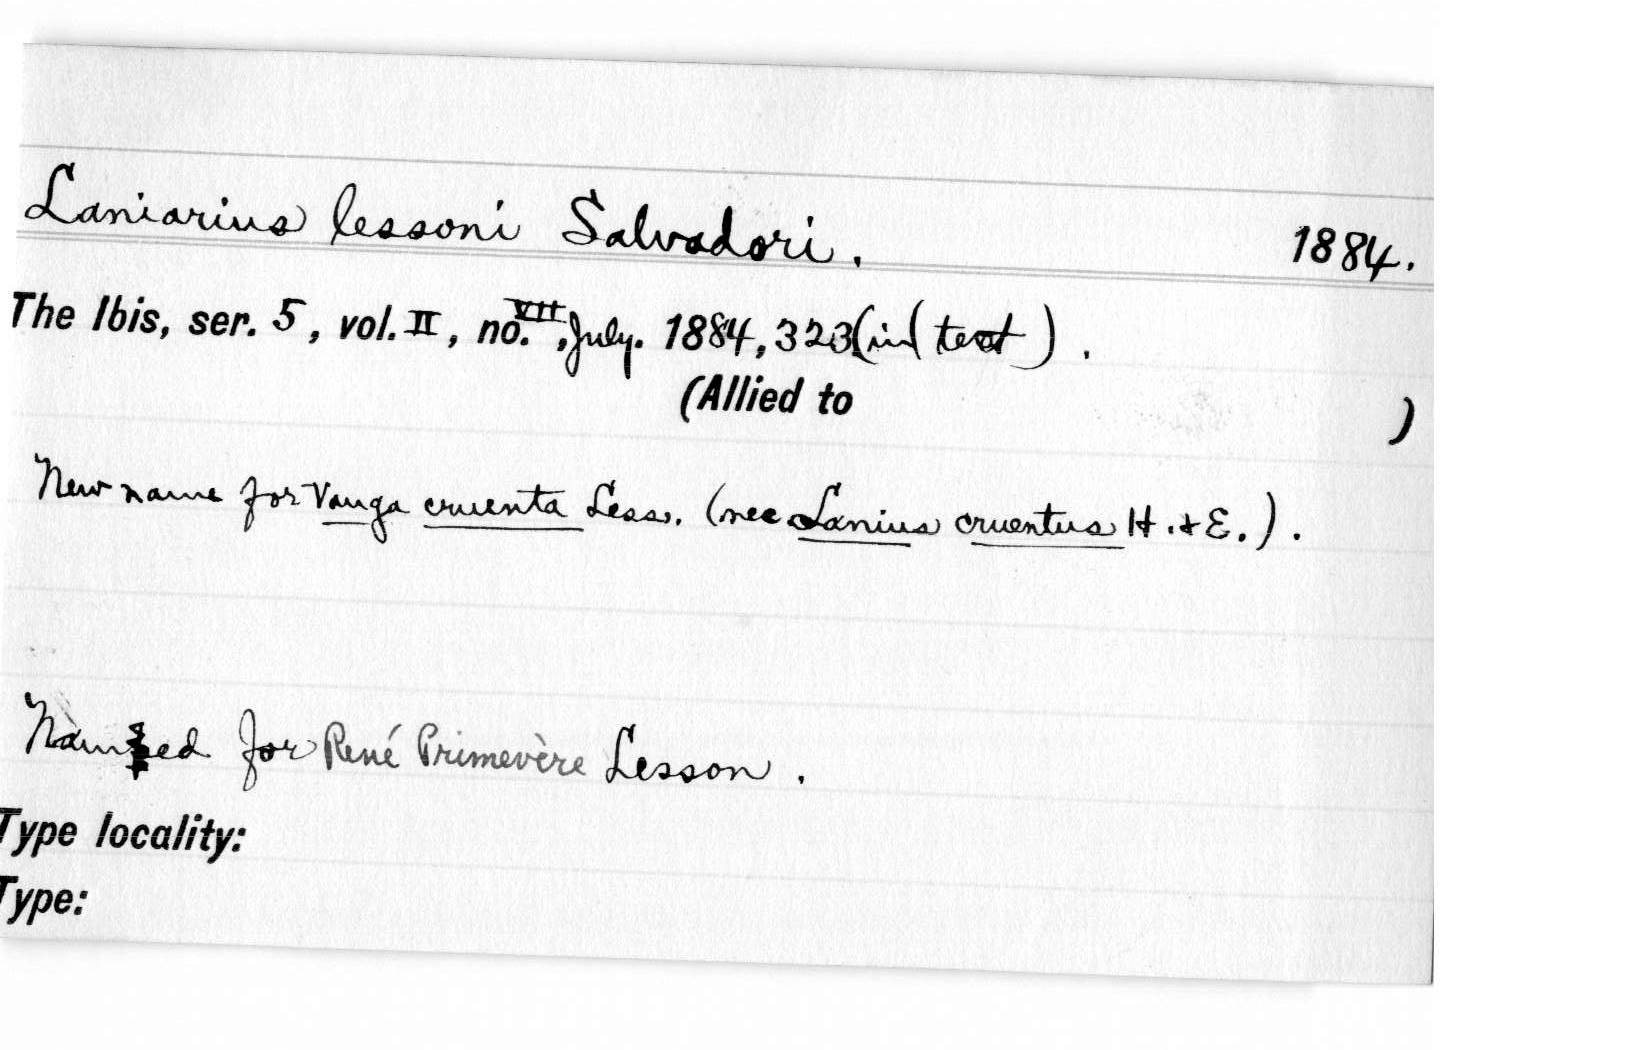 Laniarius lessoni Salvadori. 1884.
The Ibis, ser. 5, vol. II, no. VII, July. 1884, 323 (in text).
(Allied to )
New name for Vanga cruenta Less. (nec Lanius cruentus H. & E.).
Named for René Primevère Lesson.
Type locality:
Type: